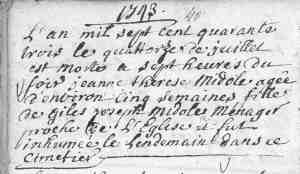 1743 40
L'an mil sept cent quarante
trois le quatorse de juillet
est morte a sept heures du
soir jeanne therese midole agée
d'environ cinq semaines fille
de giles joseph midoles menager
proche de L'Eglise et fut
inhumée le Lendemain dans ce
Cimetier